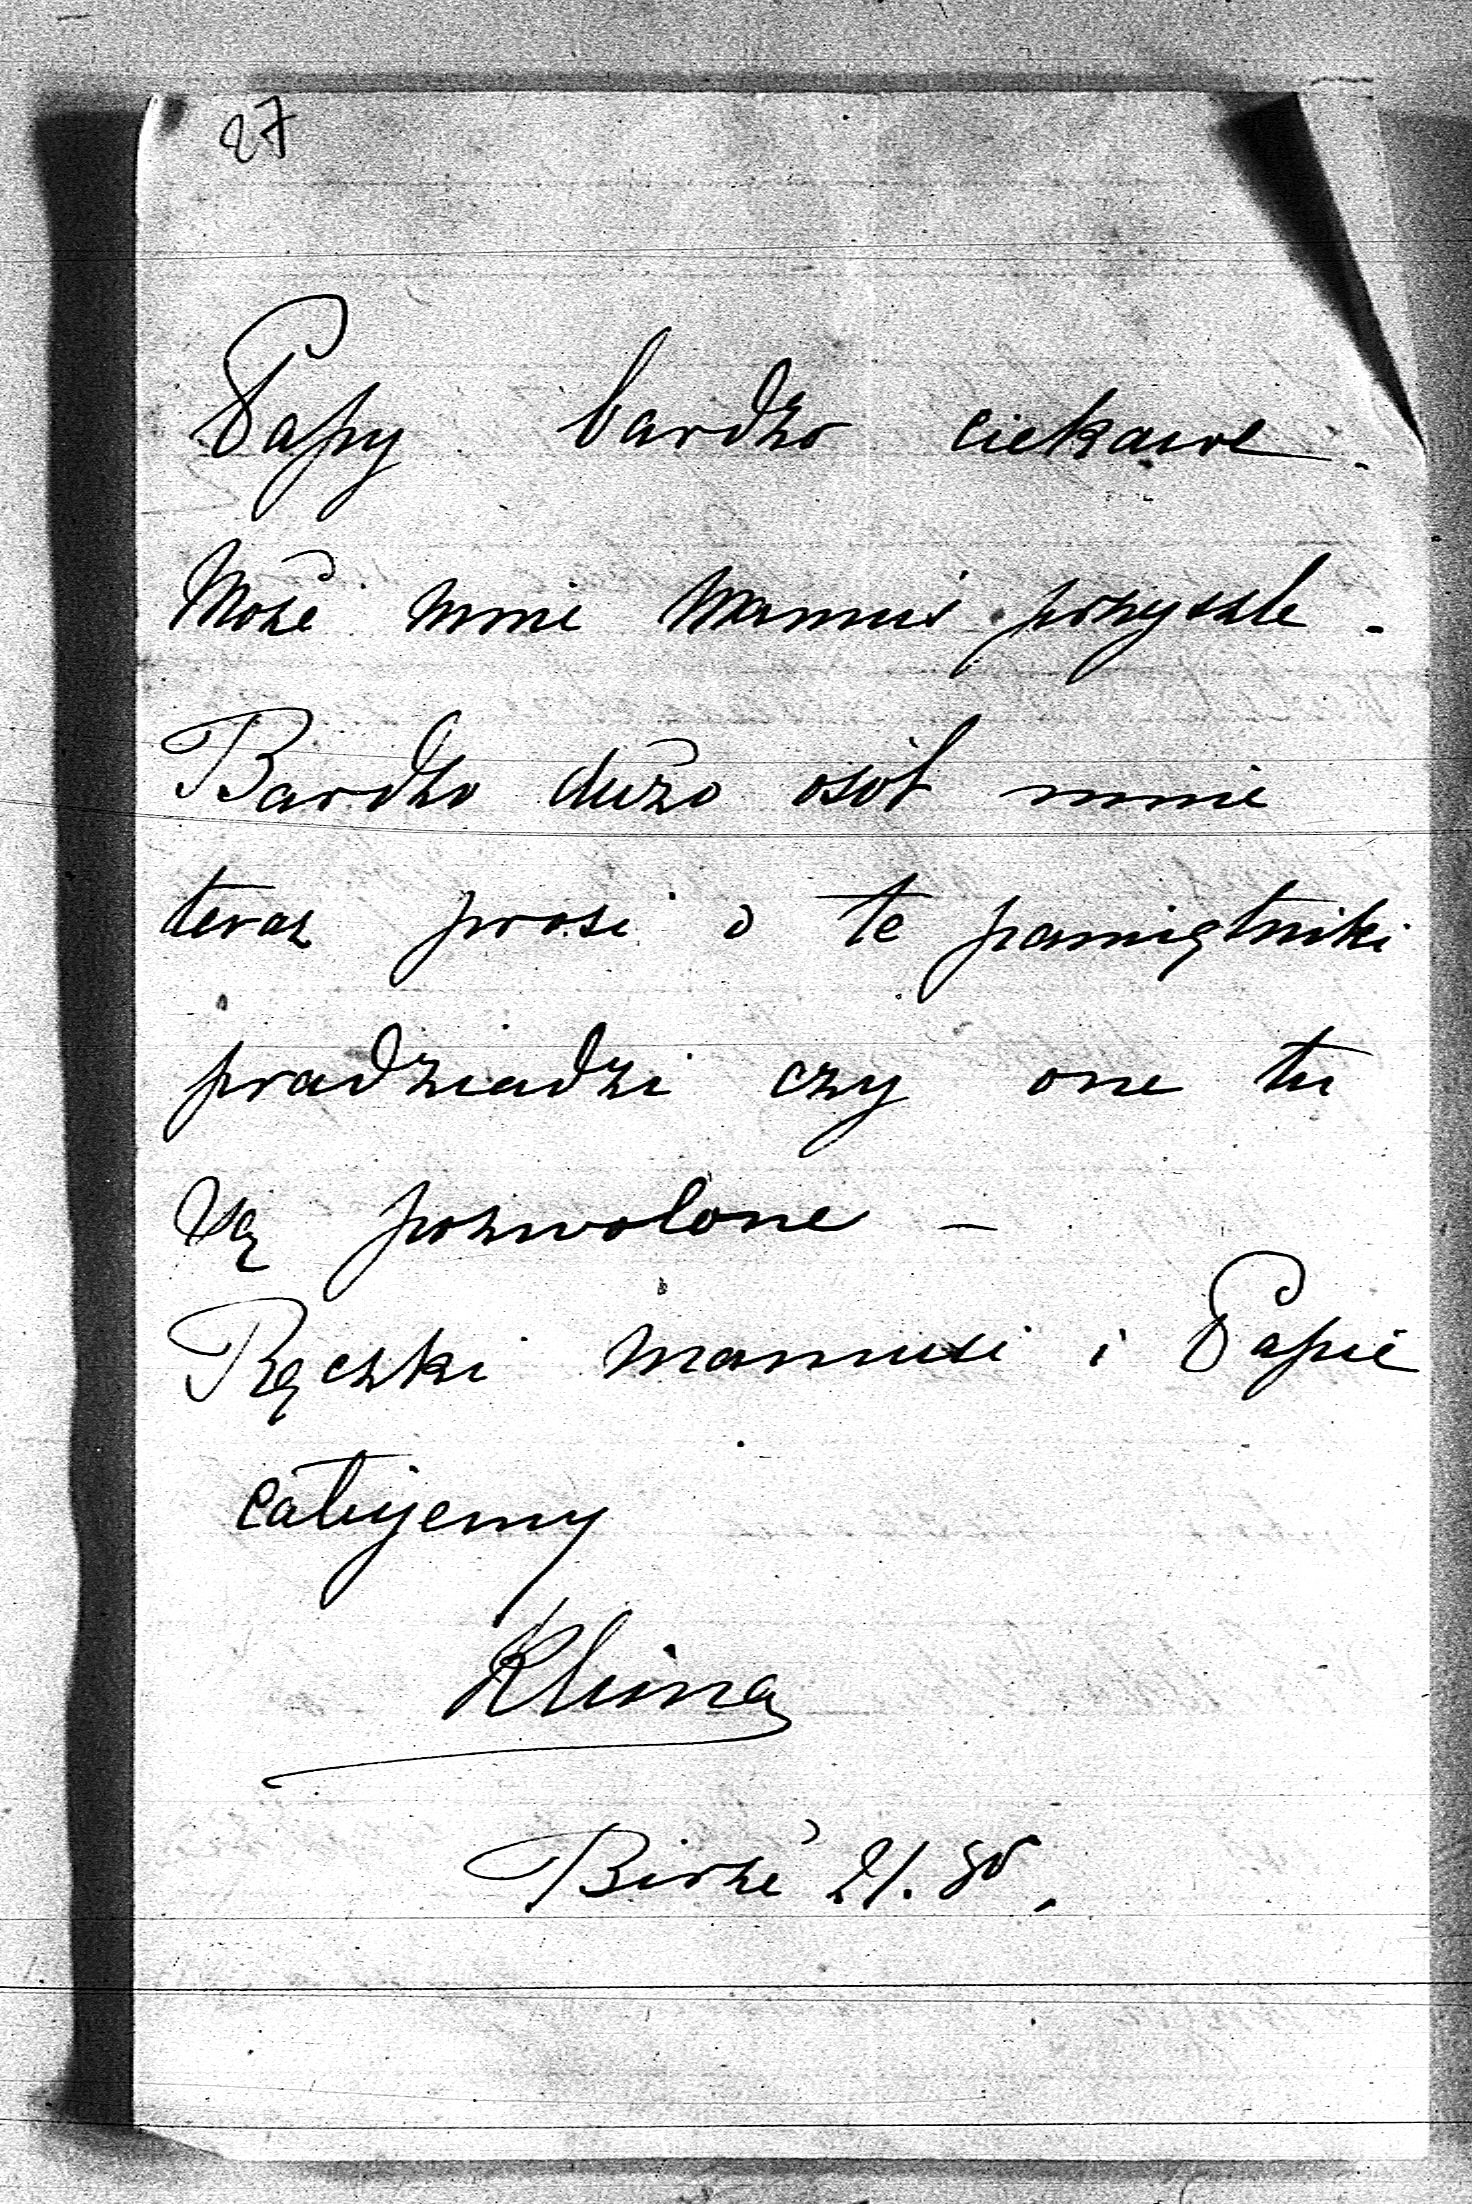 27
Papy bardzo ciekawe.
Może mnie Mamuś przyszle.
Bardzo dużo osób mnie
teraz prosi o te pamiętniki
pradziadzi czy one tu
są pozwolone –
Rączki Mamusi i Papie
całujemy
Klima
Birże 21. 80.